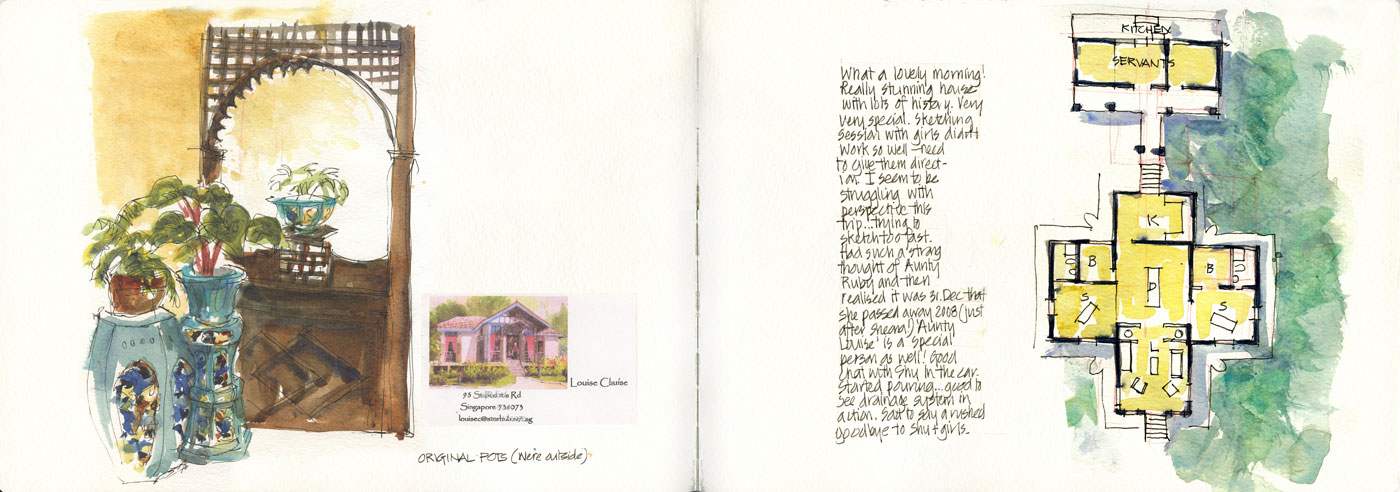 Louise Clarise
Singapore
ORIGINAL POTS (Were outside)
What a lovely morning!
Really stunning house
with lots of history. Very
very special. Sketching
session with girls didn't
work so well – need
to give them direct-
ion. I seem to be
struggling with
perspective this
trip... trying to
sketch too fast.
Had such a strong
thought of Aunty
Ruby and then
realised it was 31. Dec that
she passed away 2008 (just
after Sheam!) 'Aunty
Louise' is a special
person as well! Good
chat with Shu in the car.
Started pouring... good to
see drainage system in
action. Sad to say a rushed
goodbye to Shu + girls.
KITCHEN
SERVANTS
K
B
B
S
D
S
L